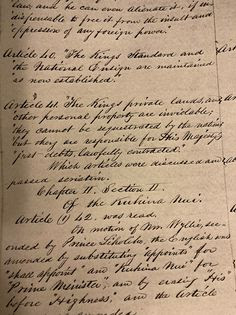 law, and he can even alienate it, if in-
dispensable to free it from the insult and
oppression of any foreign power."
Article 40. "The Kings Standard and
the National Ensign are maintained
as now established."
Article 41. "The Kings private lands, and
other personal property are inviolable,
they cannot be sequestrated by the nation
but they are responsible for His Majesty's
just debts, lawfully contracted."
Which articles were discussed and
passed seriatim.
Chapter II. Section II.
Of the Kuhina Nui.
Article (1) 42. was read.
On motion of Mr. Wyllie, sec-
onded by Prince Liholiho, the English was
amended by substituting "appoints" for
"shall appoint" and "Kuhina Nui" for
"Prime Minister", and by erasing "His"
before "Highness," and the Article